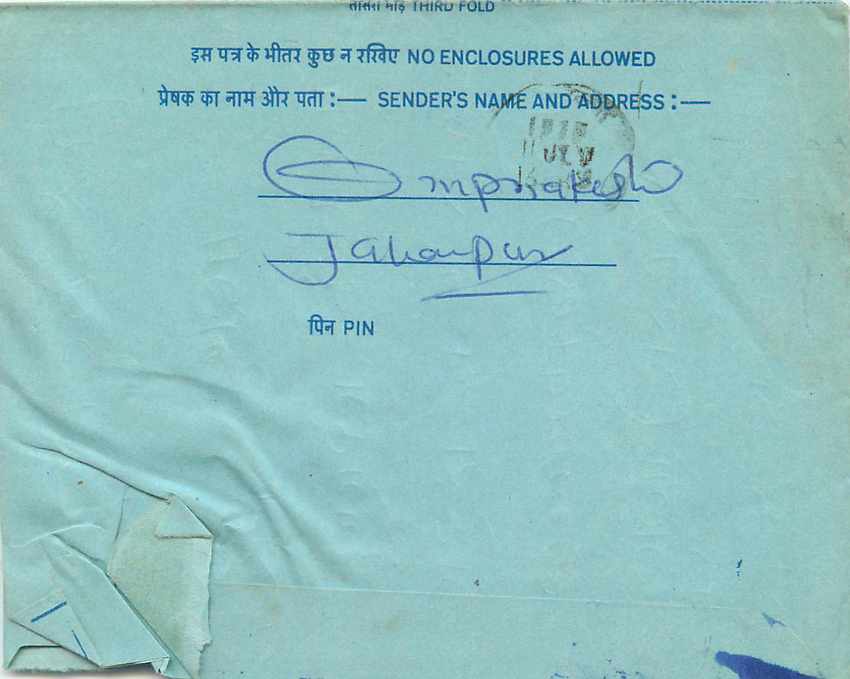 तीसरा मोड़ THIRD FOLD
इस पत्र के भीतर कुछ न रखिए NO ENCLOSURES ALLOWED
प्रेषक का नाम और पता :— SENDER'S NAME AND ADDRESS :—
Omprakash
Jahanpur
पिन PIN